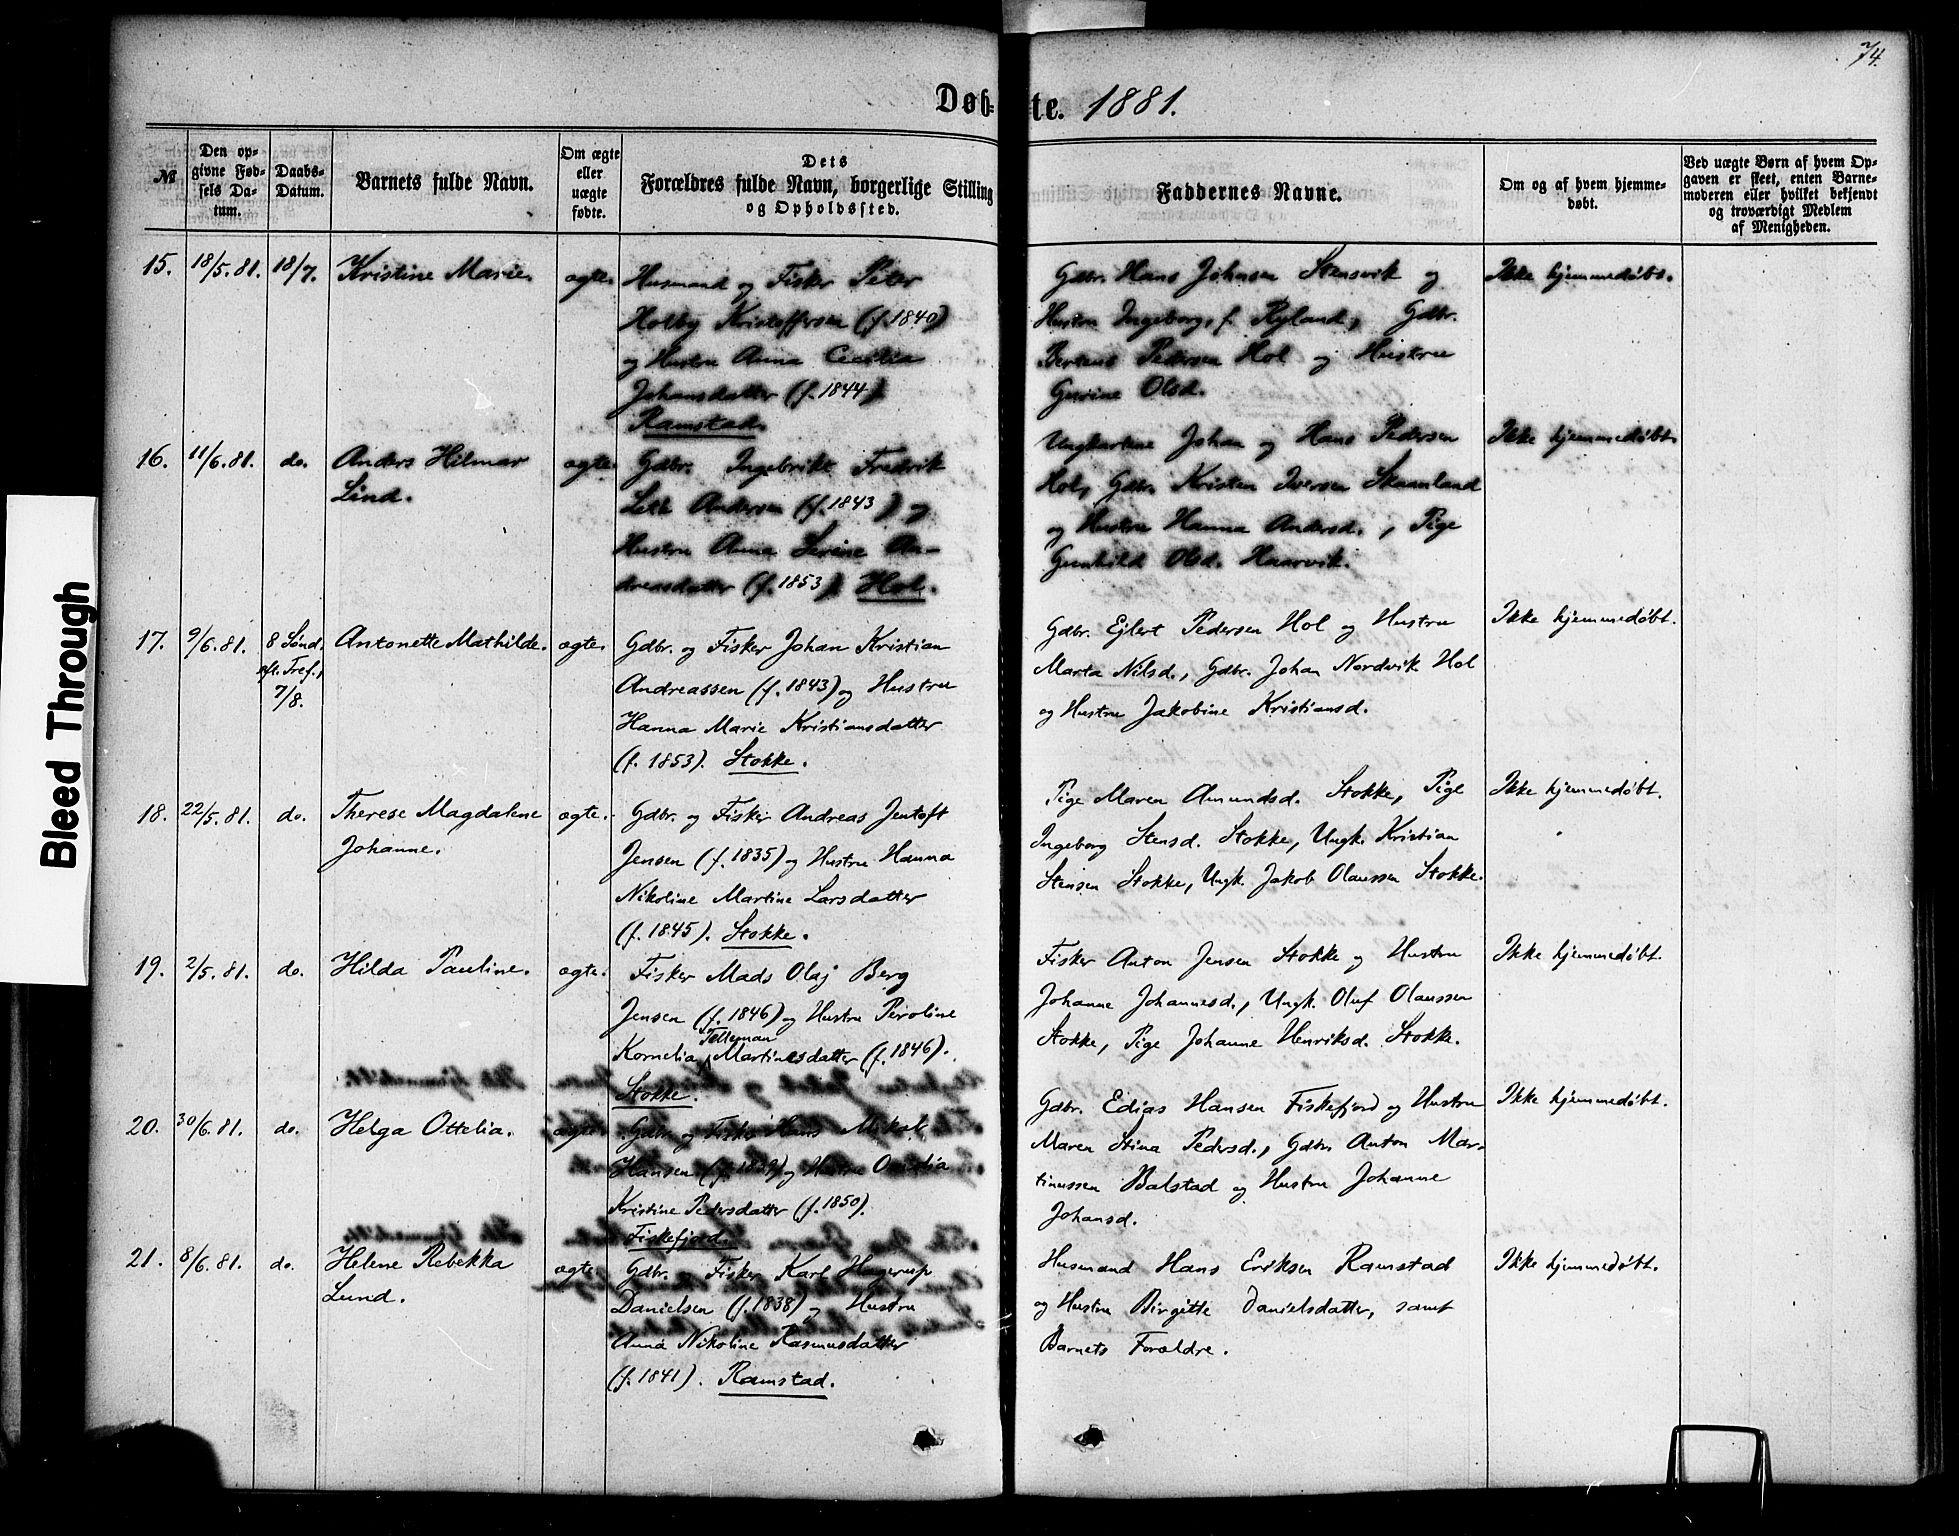 74.
Døbte. 1881.
№
Den opgivne Fødsels Datum.
Daabs-Datum.
Barnets fulde Navn.
Om ægte eller uægte fødte.
Dets Forældres fulde Navn, borgerlige Stilling og Opholdssted.
Faddernes Navne.
Om og af hvem hjemmedøbt.
Ved uægte Børn af hvem Opgaven er skeet, enten Barnemoderen eller hvilket bekjendt og troværdigt Medlem af Menigheden.
15. 18/5. 81. 18/7. Kristine Marie. ægte.
Husmand og Fisker Peter
Holby Kristoffersen (f. 1840)
og Hustru Anna Cecilia
Johansdatter (f. 1844)
Ramstad.
Gdbr. Hans Johnsen Stensvik og
Hustru Ingeborg, f. Ryland, Gdbr.
Pedersen Hol og Hustru
Gurine Olsd.
Ikke hjemmedøbt.
16. 11/6. 81. do. Anders Hilmar
Lind.
ægte.
Gdbr. Ingebrikt Fredrik
Leth Andersen (f. 1843) og
Hustru Anna Serine An-
dreasdatter (f. 1853) Hol.
Ungkarlene Johan og Hans Pedersen
Hol, Gdbr. Kristen Iversen Skaanland
og Hustru Hanna Andersd., Pige
Gunhild Olsd. Haarvik.
Ikke hjemmedøbt.
17. 9/6. 81. 8 Sønd.
eft. Tref.,
7/8.
Antonette Mathilde. ægte.
Gdbr. og Fisker Johan Kristian
Andreassen (f. 1843) og Hustru
Hanna Marie Kristiansdatter
(f. 1853). Stokke.
Gdbr. Ejlert Pedersen Hol og Hustru
Marta Nilsd., Gdbr. Johan Nordvik Hol
og Hustru Jakobine Kristiansd.
Ikke hjemmedøbt.
18. 22/5. 81. do. Therese Magdalene
Johanne.
ægte.
Gdbr. og Fisker Andreas Jentoft
Jensen (f. 1835) og Hustru Hanna
Nikoline Martine Larsdatter
(f. 1845). Stokke.
Pige Maren Amundsd. Stokke, Pige
Ingeborg Stensd. Stokke, Ungk. Kristian
Stensen Stokke, Ungk. Jakob Olaussen Stokke.
Ikke hjemmedøbt.
19. 2/5. 81. do. Hilda Pauline. ægte.
Fisker Mads Olaj Berg
Jensen (f. 1846) og Hustru Peroline
Kornelia Telleman Martinesdatter (f. 1846).
Stokke.
Fisker Anton Jensen Stokke og Hustru
Johanne Johannesd., Ungk. Oluf Olaussen
Stokke, Pige Johanne Henriksd. Stokke.
Ikke hjemmedøbt.
20. 30/6. 81. do. Helga Ottelia. ægte.
Gdbr. og Fisker Hans Mikal
Hansen (f. 1839) og Hustru
Kristine Pedersdatter (f. 1850).
Fiskefjord.
Gdbr. Edias Hansen Fiskefjord og Hustru
Maren Stina Pedersd., Gdbr. Anton Mar-
tinussen Balstad og Hustru Johanne
Johansd.
Ikke hjemmedøbt.
21. 8/6. 81. do. Helene Rebekka
Lund.
ægte
Gdbr. Fisker Karl Hagerup
Danielsen (f. 1838) og Hustru
Anna Nikoline Rasmusdatter
(f. 1841). Ramstad.
Husmand Hans Eriksen Ramstad
og Hustru Birgitte Danielsdatter, samt
Barnets Forældre.
Ikke hjemmedøbt.
Bleed Through